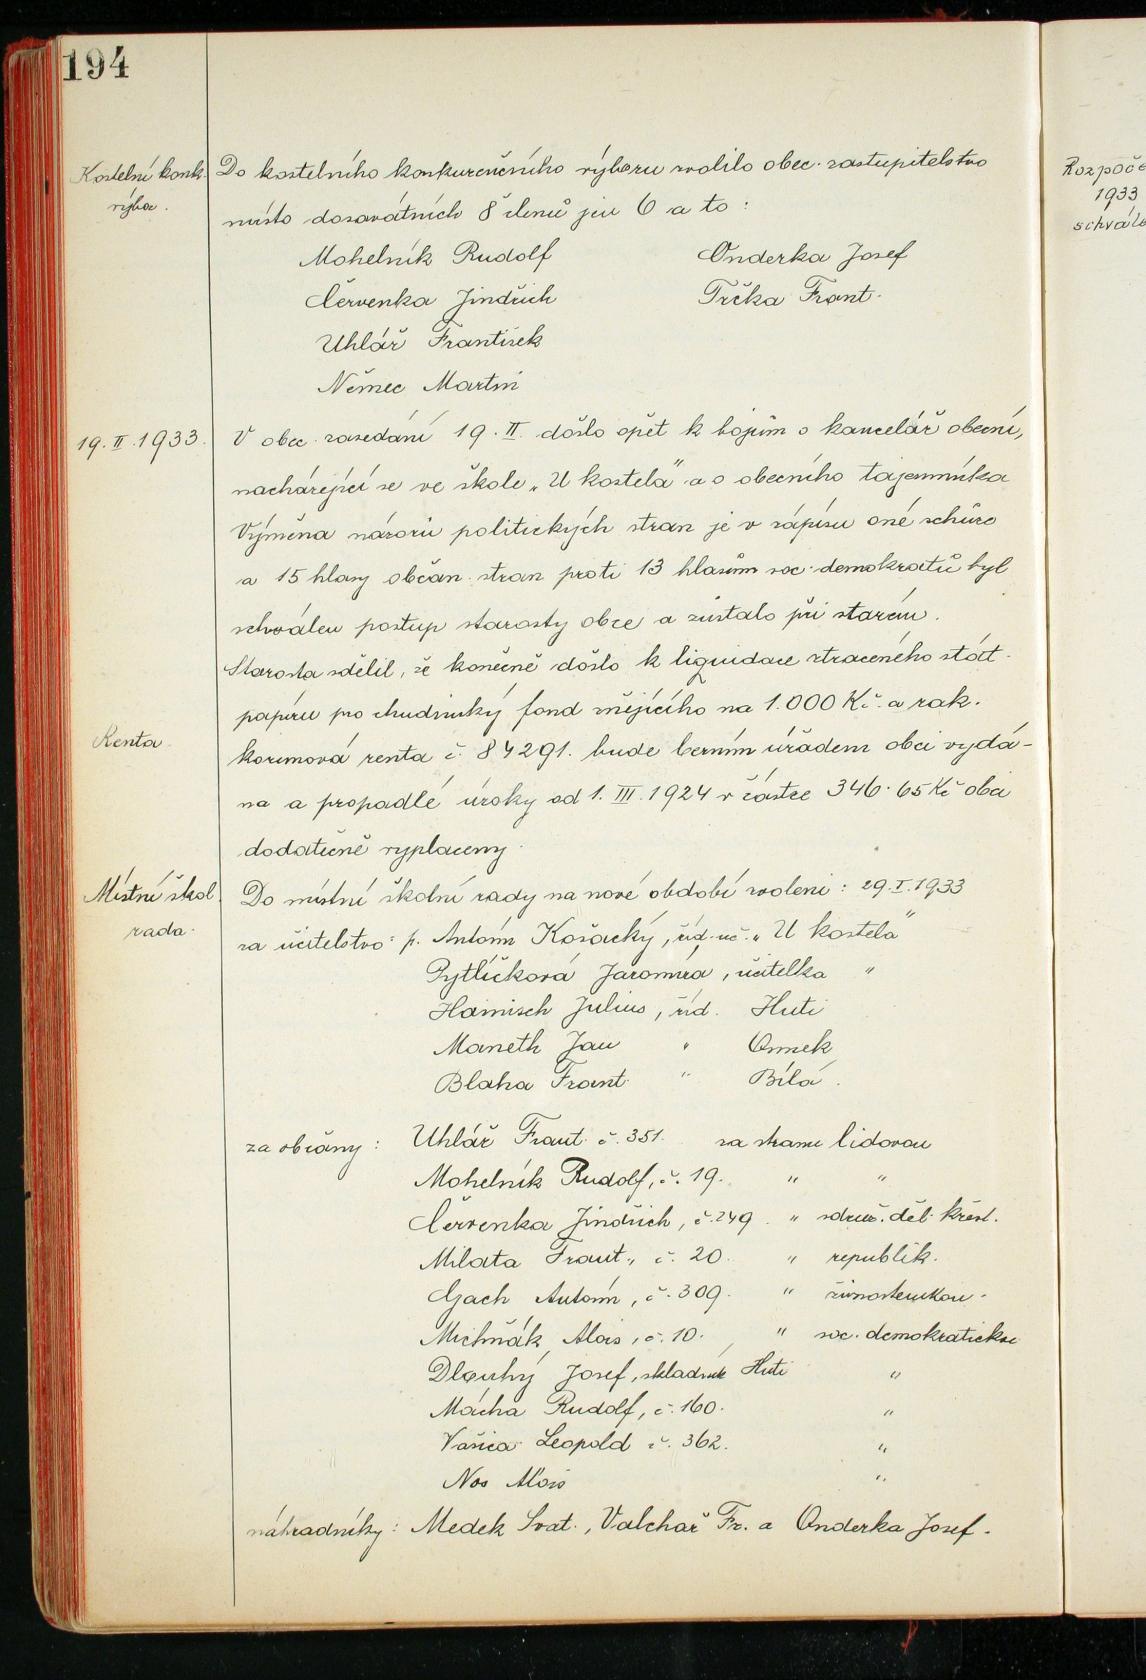 194
Kostelní konk.
výbor.
Do kostelního konkurenčního výboru zvolilo obec. zastupitelstvo
místo dosavátních 8 členů jen 6 a to:
Mohelník Rudolf Onderka Josef
Červenka Jindřich Trčka Frant.
Uhlář František
Němec Martin
19. II. 1933.
V obec. zasedání 19. II. došlo opět k bojům o kancelář obecní,
nacházející se ve škole „U kostela" a o obecního tajemníka
Výměna názorů politických stran je v zápisu oné schůze
a 15 hlasy občan. stran proti 13 hlasům soc. demokratů byl
schválen postup starosty obce a zůstalo při starém.
Starosta sdělil, že konečně došlo k liquidace ztraceného stát.
papíru pro chudinský fond znějícího na 1.000 Kč. a rak.
Renta.
korunová renta č. 84291. bude berním úřadem obci vydá-
na a propadlé úroky od 1. III. 1924 v částce 346.65 Kč obci
dodatečně vyplaceny.
Místní škol.
rada.
Do místní školní rady na nové období zvoleni: 29. I. 1933
za učitelstvo: p. Antonín Košacký, říd. uč. „U kostela"
Pytlíčková Jaromíra, učitelka "
Hainisch Julius, říd. Huti
Maneth Jan " Ormek
Blaha Frant. " Bílá.
za občany: Uhlář Frant. č. 351. za stranu lidovou
Mohelník Rudolf, č. 19. " "
Červenka Jindřich, č. 249. " sdruž. děl. křest.
Milata Frant., č. 20. " republik.
Gach Antonín, č. 309. " živnostenskou.
Michňák Alois, č. 10. " soc. demokratickou
Dlouhý Josef, skladník Huti "
Mácha Rudolf, č. 160. "
Vašica Leopold č. 362. "
Nos Alois "
náhradníky: Medek Svat., Valchař Fr. a Onderka Josef.
Rozpoče
1933
schvále